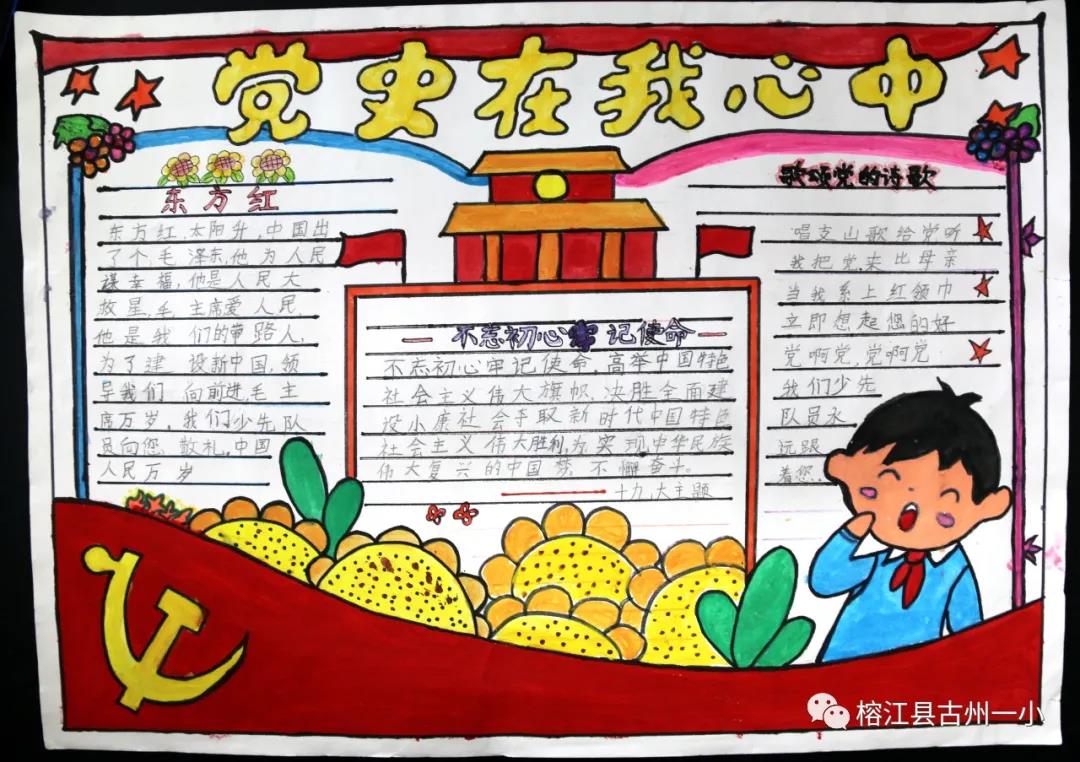 党史在我心中
东方红
东方红,太阳升,中国出
了个,毛泽东,他为人民
谋幸福,他是人民大
救星,毛主席爱人民,
他是我们的带路人,
为了建设新中国,领
导我们向前进,毛主
席万岁。我们少先队
员向您敬礼,中国
人民万岁
不忘初心牢记使命
不忘初心牢记使命,高举中国特色
社会主义伟大旗帜,决胜全面建
设小康社会夺取新时代中国特色
社会主义伟大胜利,为实现中华民族
伟大复兴的中国梦,不懈奋斗。
十九大主题
歌颂党的诗歌
唱支山歌给党听
我把党来比母亲
当我系上红领巾
立即想起您的好
党啊党,党啊党
我们少先
队员永
远跟
着您..
榕江县古州一小